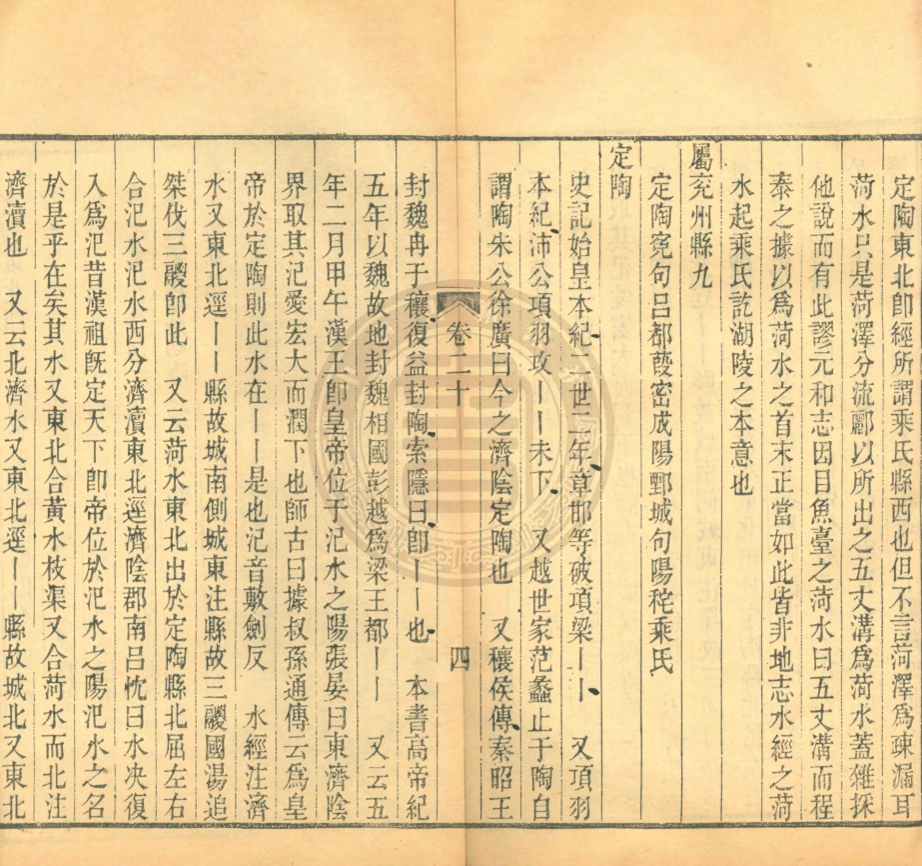 定陶東北卽經所謂乘氏縣西也但不言菏澤爲疎漏耳
菏水只是菏澤分流酈以所出之五丈溝爲菏水蓋雜採
他說而有此謬元和志因目魚臺之菏水曰五丈溝而程
泰之據以爲菏水之首末正當如此皆非地志水經之菏
水起乘氏訖湖陵之本意也
屬兗州縣九
定陶寃句呂都葭密成陽鄄城句陽秺乘氏
定陶
史記始皇本紀二世二年章邯等破項梁丨丨　又項羽
本紀沛公項羽攻丨丨未下　又越世家范蠡止于陶自
謂陶朱公徐廣曰今之濟陰定陶也　又穰侯傳秦昭王
卷二十　四
封魏冉于穰復益封陶索隱曰卽丨丨也　本書高帝紀
五年以魏故地封魏相國彭越爲梁王都丨丨　又云五
年二月甲午漢王卽皇帝位于汜水之陽張晏曰東濟陰
界取其汜愛宏大而潤下也師古曰據叔孫通傳云爲皇
帝於定陶則此水在丨丨是也汜音敷劍反　水經注濟
水又東北逕丨丨縣故城南側城東注縣故三鬷國湯追
桀伐三鬷卽此　又云菏水東北出於定陶縣北屈左右
合汜水汜水西分濟瀆東北逕濟陰郡南呂忱曰水决復
入爲汜昔漢祖旣定天下卽帝位於汜水之陽汜水之名
於是乎在矣其水又東北合黃水枝渠又合菏水而北注
濟瀆也　又云北濟水又東北逕丨丨縣故城北又東北